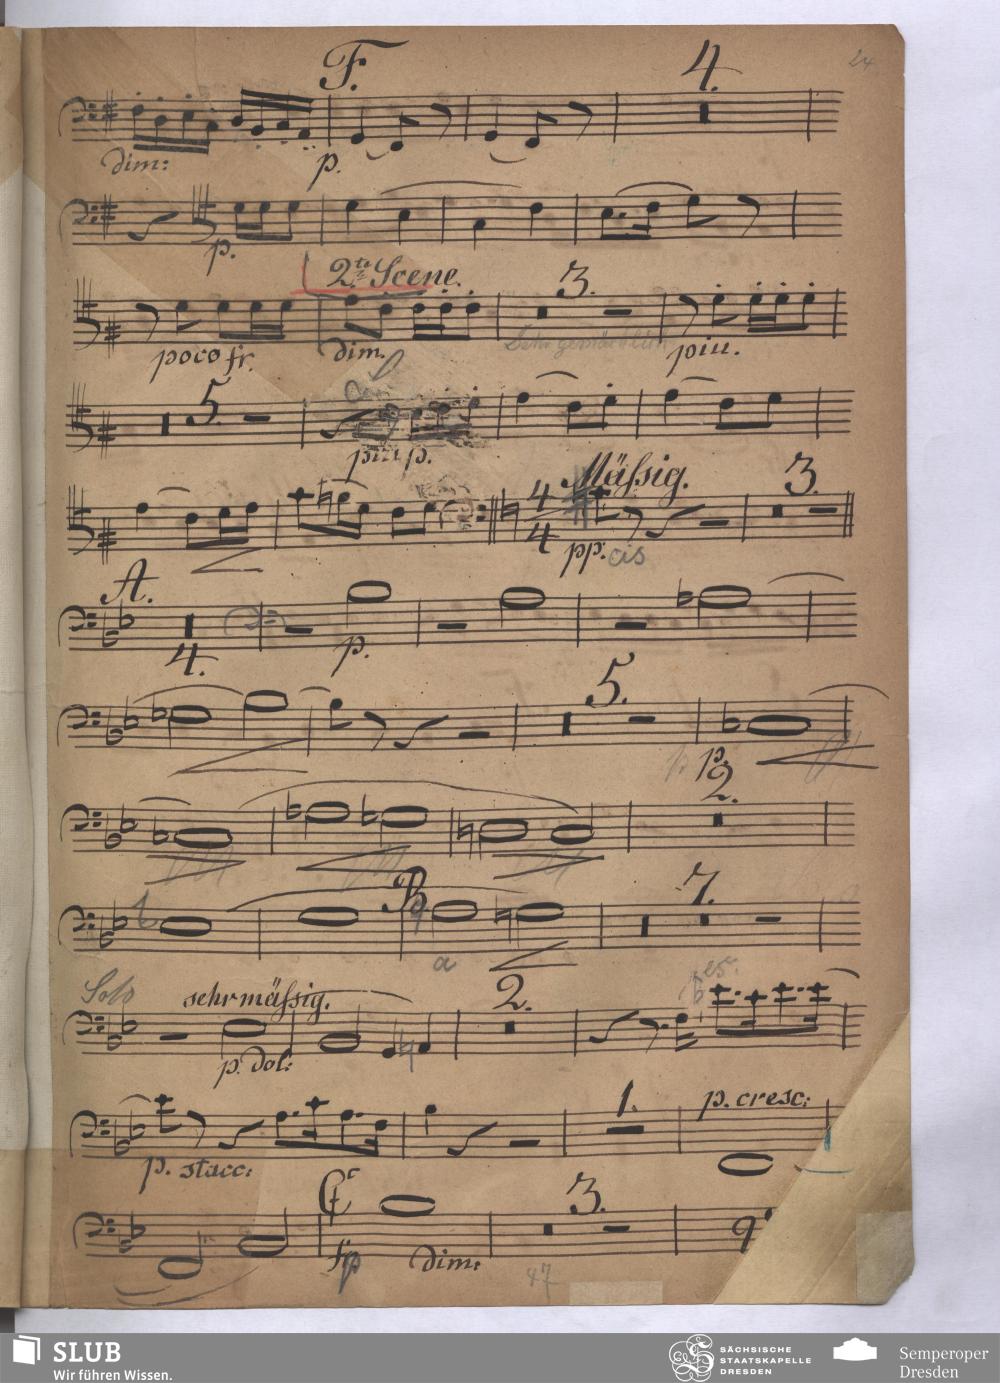 24
F.
4.
dim:
p.
p.
2te Scene.
3.
poco fr.
dim.
piu.
5.
piu p.
Mäßig.
3.
4
4
pp.
cis
A.
4.
p.
5.
p.
2.
B
7.
a
Solo
sehr mäßig.
2.
es.
p. dol:
1.
p. cresc:
p. stacc:
C
3.
fp
dim:
47
SLUB
Wir führen Wissen.
SÄCHSISCHE
STAATSKAPELLE
DRESDEN
Semperoper
Dresden